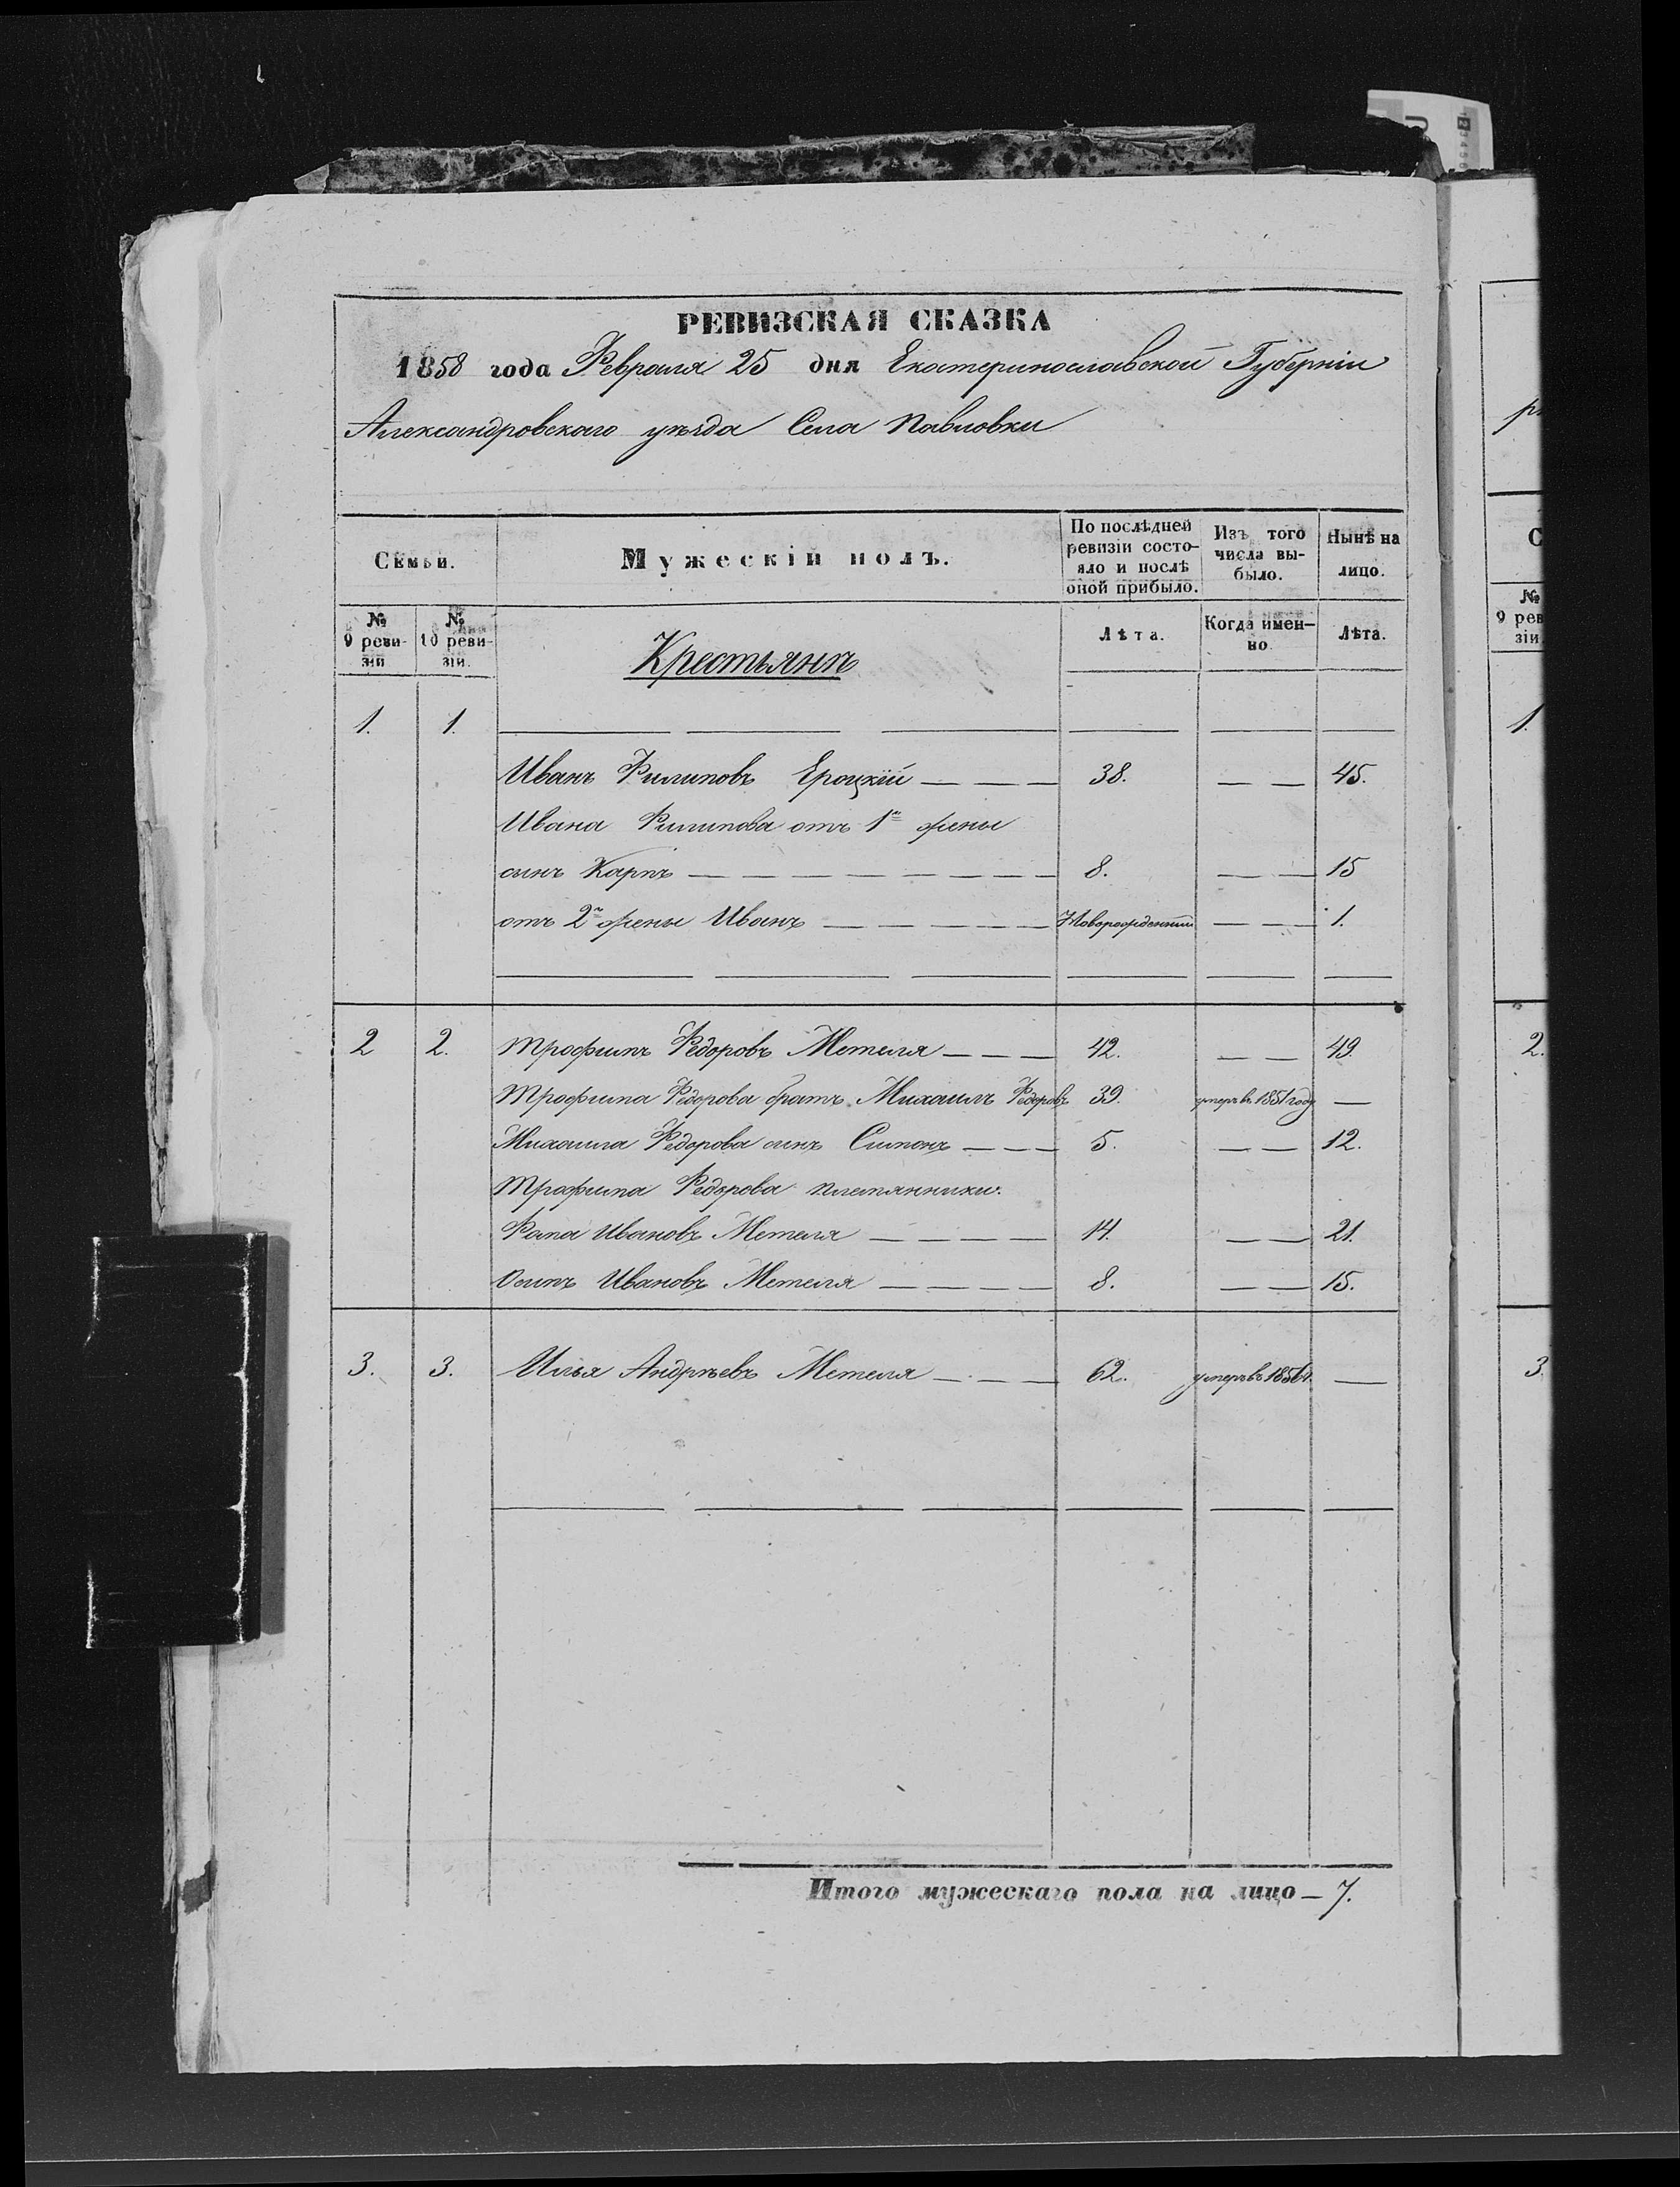 РЕВИЗСКАЯ СКАЗКА
1858 года Февраля 25 дня Екатеринославской Губерніи
Александровскаго уѣзда Села Павловки
Семьи.
Мужескій полъ.
По послѣдней ревизіи состояло и послѣ оной прибыло.
Изъ того числа выбыло.
Нынѣ на лицо.
№ 9 ревизіи
№ 10 ревизіи.
Крестьянѣ
Лѣта.
Когда именно
Лѣта.
1. 1.
Иванъ Филиповъ Ероцкій — — — 38. — — 45.
Ивана Филипова отъ 1й жены
сынъ Карпъ — — — — — — — — 8. — — 15
отъ 2й жены Иванъ — — — — — Новорожденный — — 1.
2 2. Трофимъ Федоровъ Метеля — — — 42. — — 49.
Трофима Федорова братъ Михаилъ Федоровъ 39. умеръ въ 1851 году —
Михаила Федорова сынъ Симонъ — — — 5. — — 12.
Трофима Федорова племянники.
Фома Ивановъ Метеля — — — — 14. — — 21.
Осипъ Ивановъ Метеля — — — — 8. — — 15.
3. 3. Илья Андрѣевъ Метеля — — — 62. умеръ въ —
Итого мужескаго пола на лицо — 7.
№
9 рев
зіи
1.
2.
3.